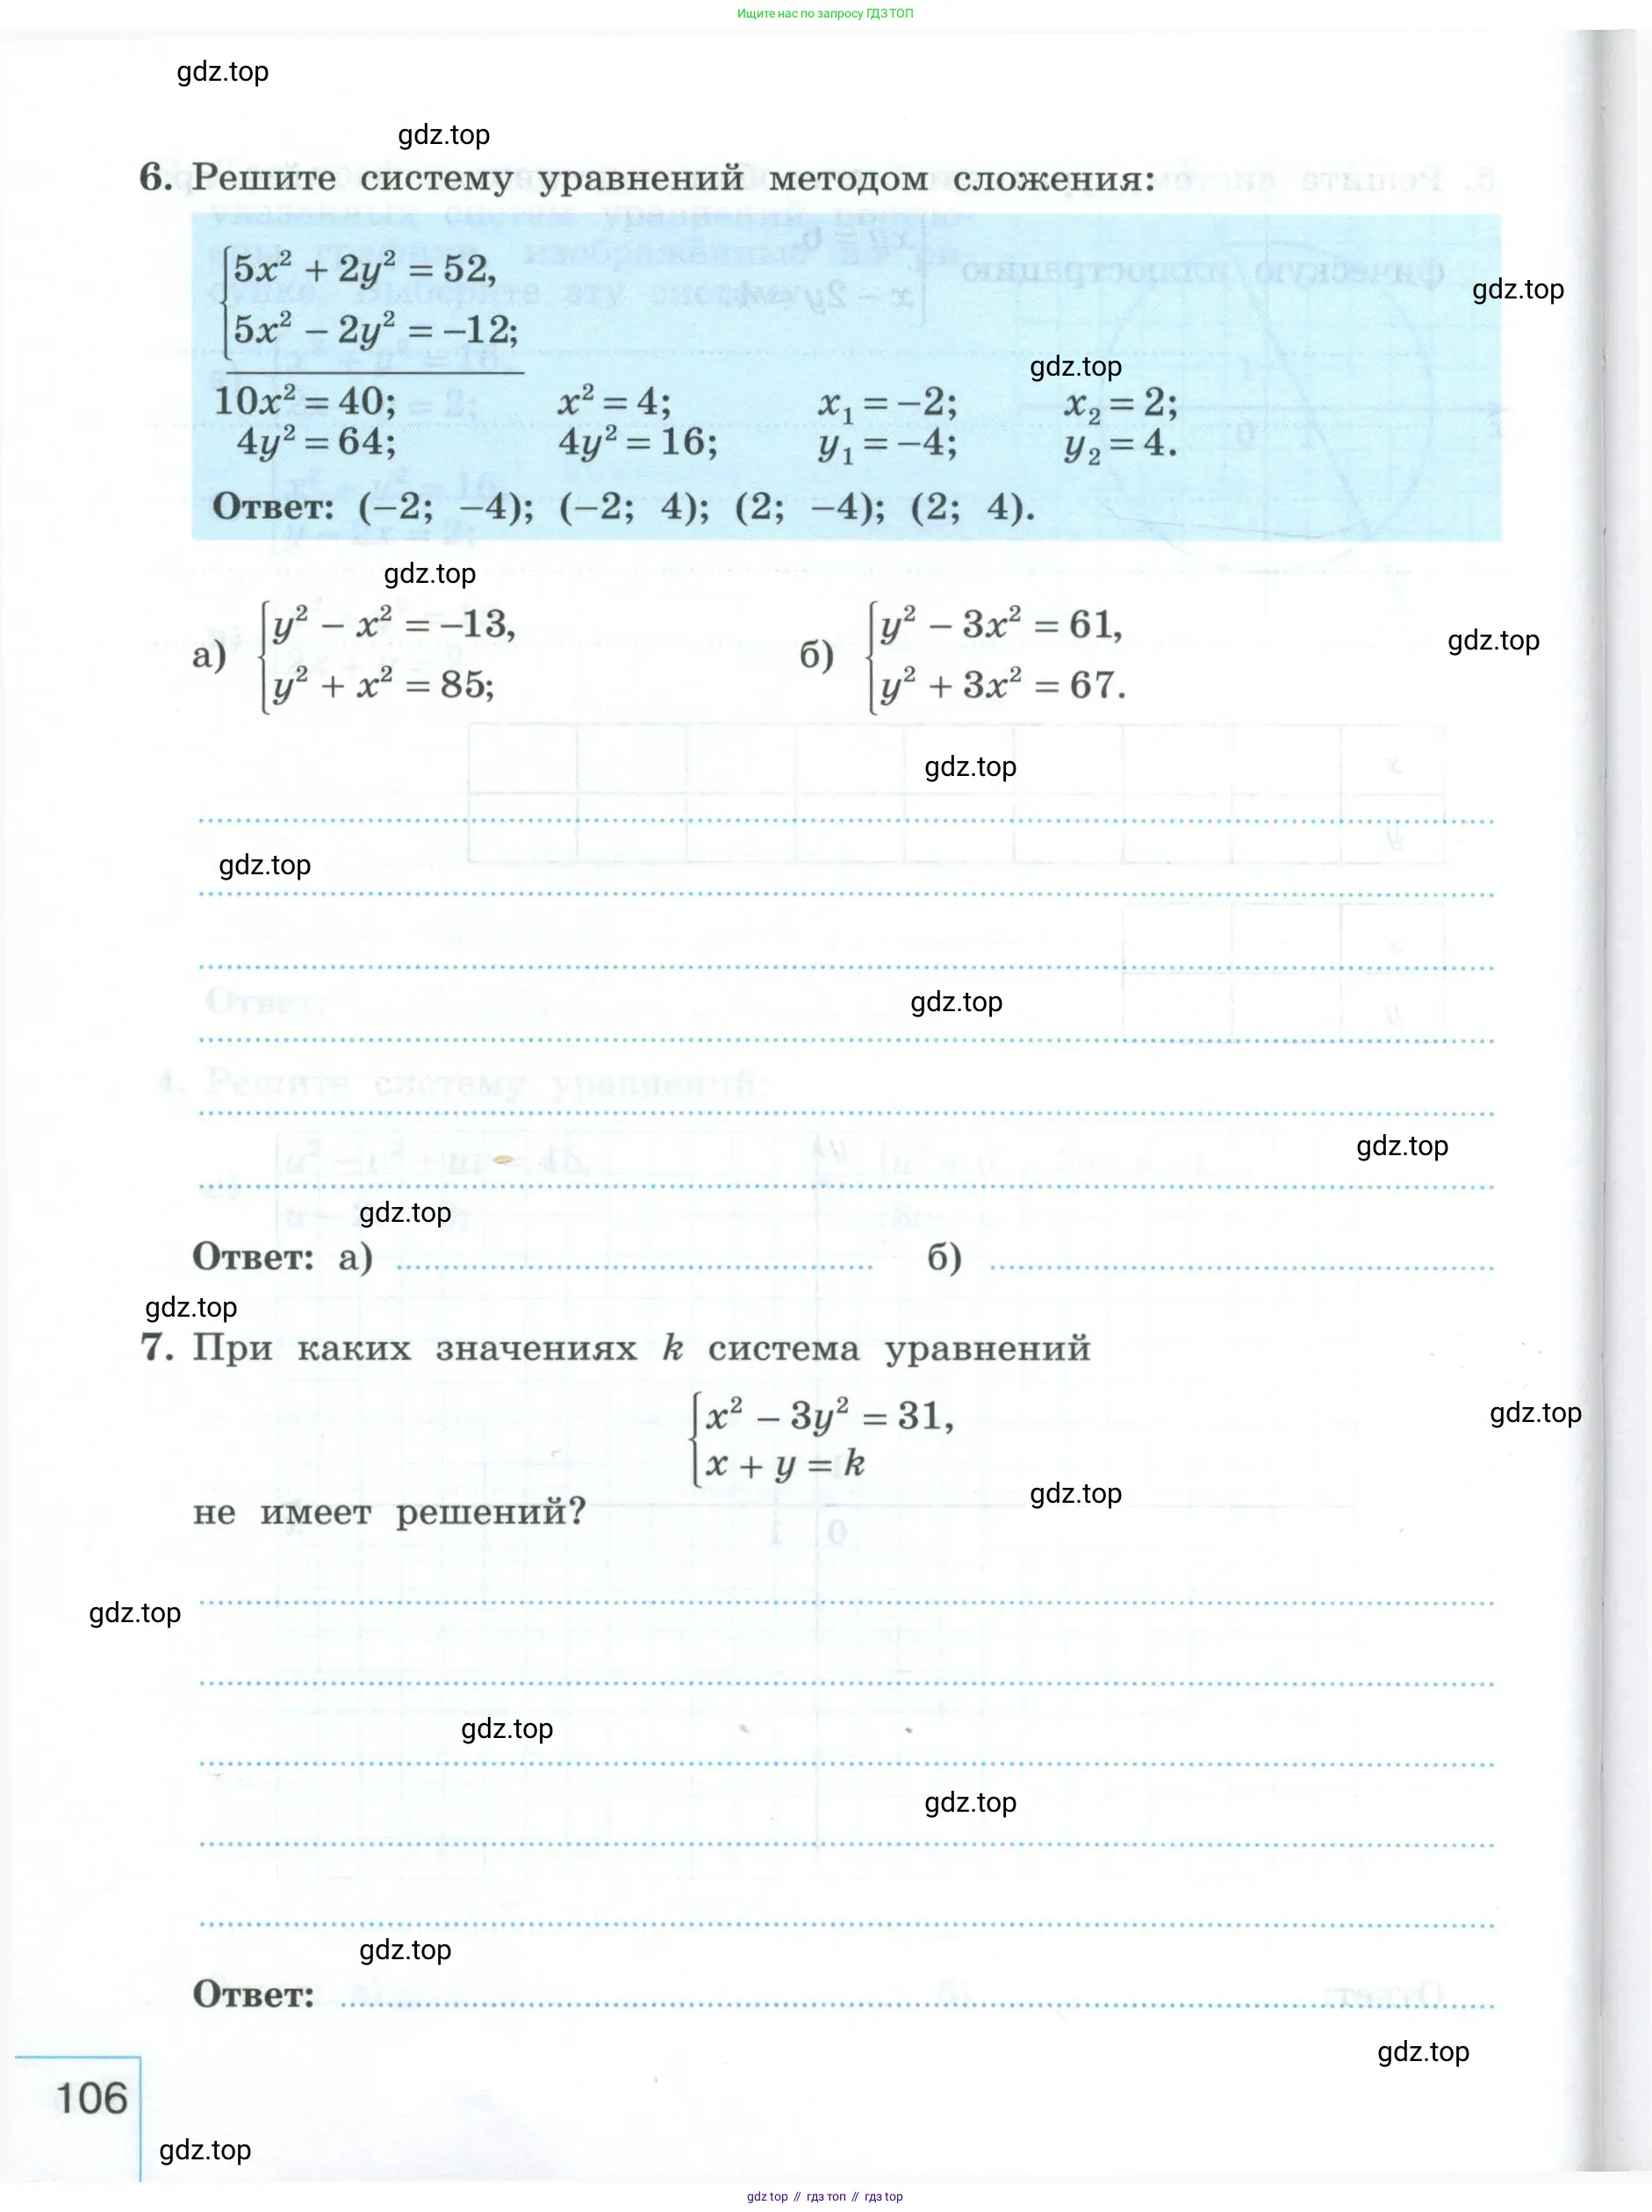 Ищите нас по запросу ГДЗ ТОП
gdz.top
gdz.top
6. Решите систему уравнений методом сложения:
5x² + 2y² = 52,
gdz.top
5x² − 2y² = −12;
gdz.top
10x² = 40; x² = 4; x₁ = −2; x₂ = 2;
4y² = 64; 4y² = 16; y₁ = −4; y₂ = 4.
Ответ: (−2; −4); (−2; 4); (2; −4); (2; 4).
gdz.top
а) { y² − x² = −13, б) { y² − 3x² = 61,
gdz.top
y² + x² = 85; y² + 3x² = 67.
gdz.top
gdz.top
gdz.top
gdz.top
gdz.top
Ответ: а) б)
gdz.top
7. При каких значениях k система уравнений
{ x² − 3y² = 31,
gdz.top
x + y = k
gdz.top
не имеет решений?
gdz.top
gdz.top
gdz.top
gdz.top
Ответ:
gdz.top
106
gdz.top
gdz top // гдз топ // гдз top